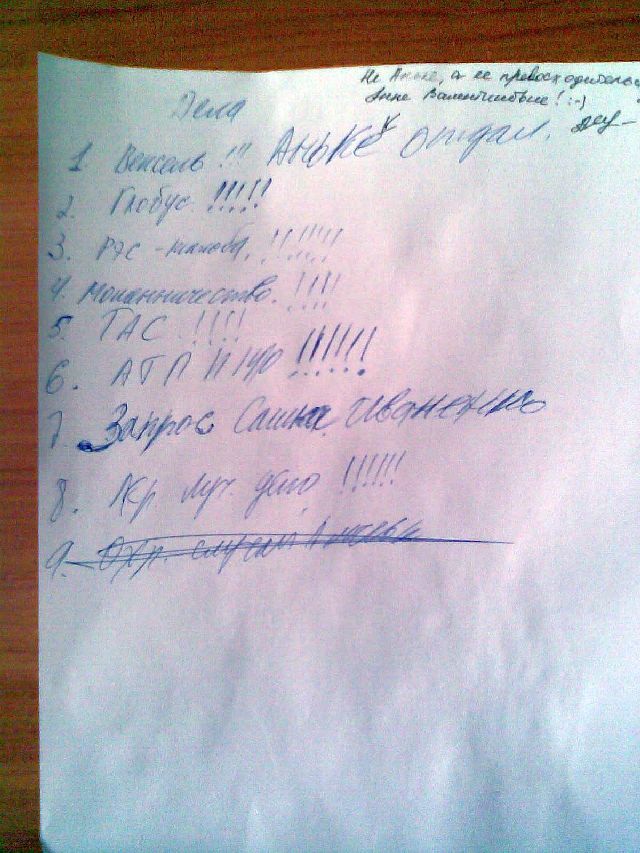 Не Аньке, а ее превосходительс
Анне Валентиновне! :-)
Дела
1 Вексель !!! Аньке отдал.
2. Глобус !!!!!
3. РЭС - жалоба. !!!!!!
4. Мошенничество. !!!!
5. ТАС. !!!!
6. АТП !!!!!!
7. Запрос Сашка Иваненко
8. Кр Луч. дело !!!!!!
9. Охр.